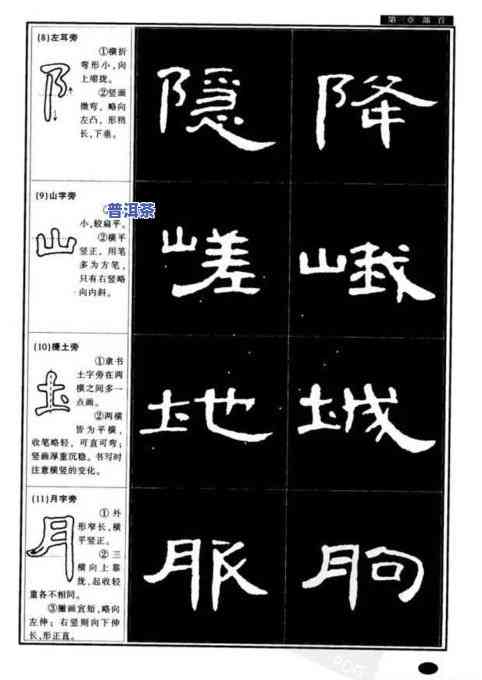 第一章部首
(8)左耳旁
①横折
弯形小,向
上缩拢。
②竖画
微弯,略向
左凸,形稍
长,下垂。
阝
隐 降
(9)山字旁
普洱茶
小,较扁平。
②横平
竖正,用笔
多为方笔,
只有右竖略
向内斜。
山
嵯 峨
(10)提土旁
①隶书
土字旁在两
横之间多一
点画。
②两横
皆为平横,
收笔略轻,可直可弯;
竖画厚重沉稳。书写时
注意横竖的变化。
地 城
(11)月字旁
①外
形窄长,横
平竖正。
②三
横向上靠
拢,起收轻
重各不相同。
③撇画宜短,略向
左伸;右竖则向下伸
长,形正直。
月
服 朐
PDG